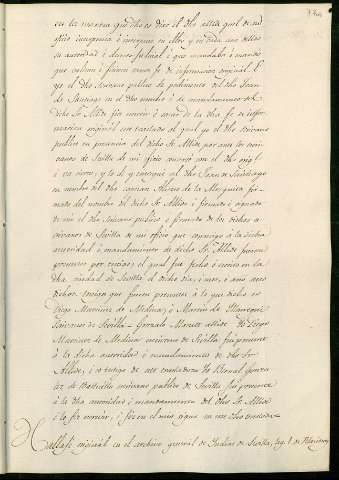 en la manera que dho es dixo el dho Allide quel de su
oficio interponia é interpuso en ellos y en cada uno dellos
su autoridad é decreto judicial é que mandaba é mando
que valiesen é ficiesen entera fe de informacion original. E
yo el dho escribano publico de pedimento del dho Joan
de Santiago en el dho nombre é de mandamiento del
dicho Sr. Allide fiz escrivir é sacar de la dha fe de infor-
macion original este traslado el qual yo el dho escrivano
publico en presencia del dicho Sr. Allide por ante los escri-
vanos de Sevilla de mi oficio concerté con el dho origl.
é va cierto, y lo dí y entregué al dho Joan de Santiago
en nombre del dho capitan Alonso de la Mezquita fir-
mado del nombre del dicho Sr. Allide é firmado é signado
de mi el dho escrivano publico é firmado de los dichos
escrivanos de Sevilla de mi oficio que conmigo á la dicha
autoridad é mandamiento de dicho Sr. Allide fueron
presentes por testigos; el qual fue fecho é escrito en la
dha ciudad de Sevilla el dicho dia, é mes, é año suso
dichos: testigos que fueron presentes á lo que dicho es
Diego Martinez de Medina, y Martin de
Escrivanos de Sevilla = Gonzalo allide Yo Diego
Martinez de Medina escrivano de Sevilla fui presente
á la dicha autoridad é mandamiento de dho Sr.
Allide, é só testigo de este treslado = Yo Bernal Gonza-
lez de Vallecillo escrivano publico de Sevilla fui presente
á la dha autoridad é mandamiento del dho Sr. Allide
é lo fiz escrivir, é fiz en él mio signo en este dho treslado
Hallase original en el archivo general de Indias de Sevilla, leg. 1. de Relaciones